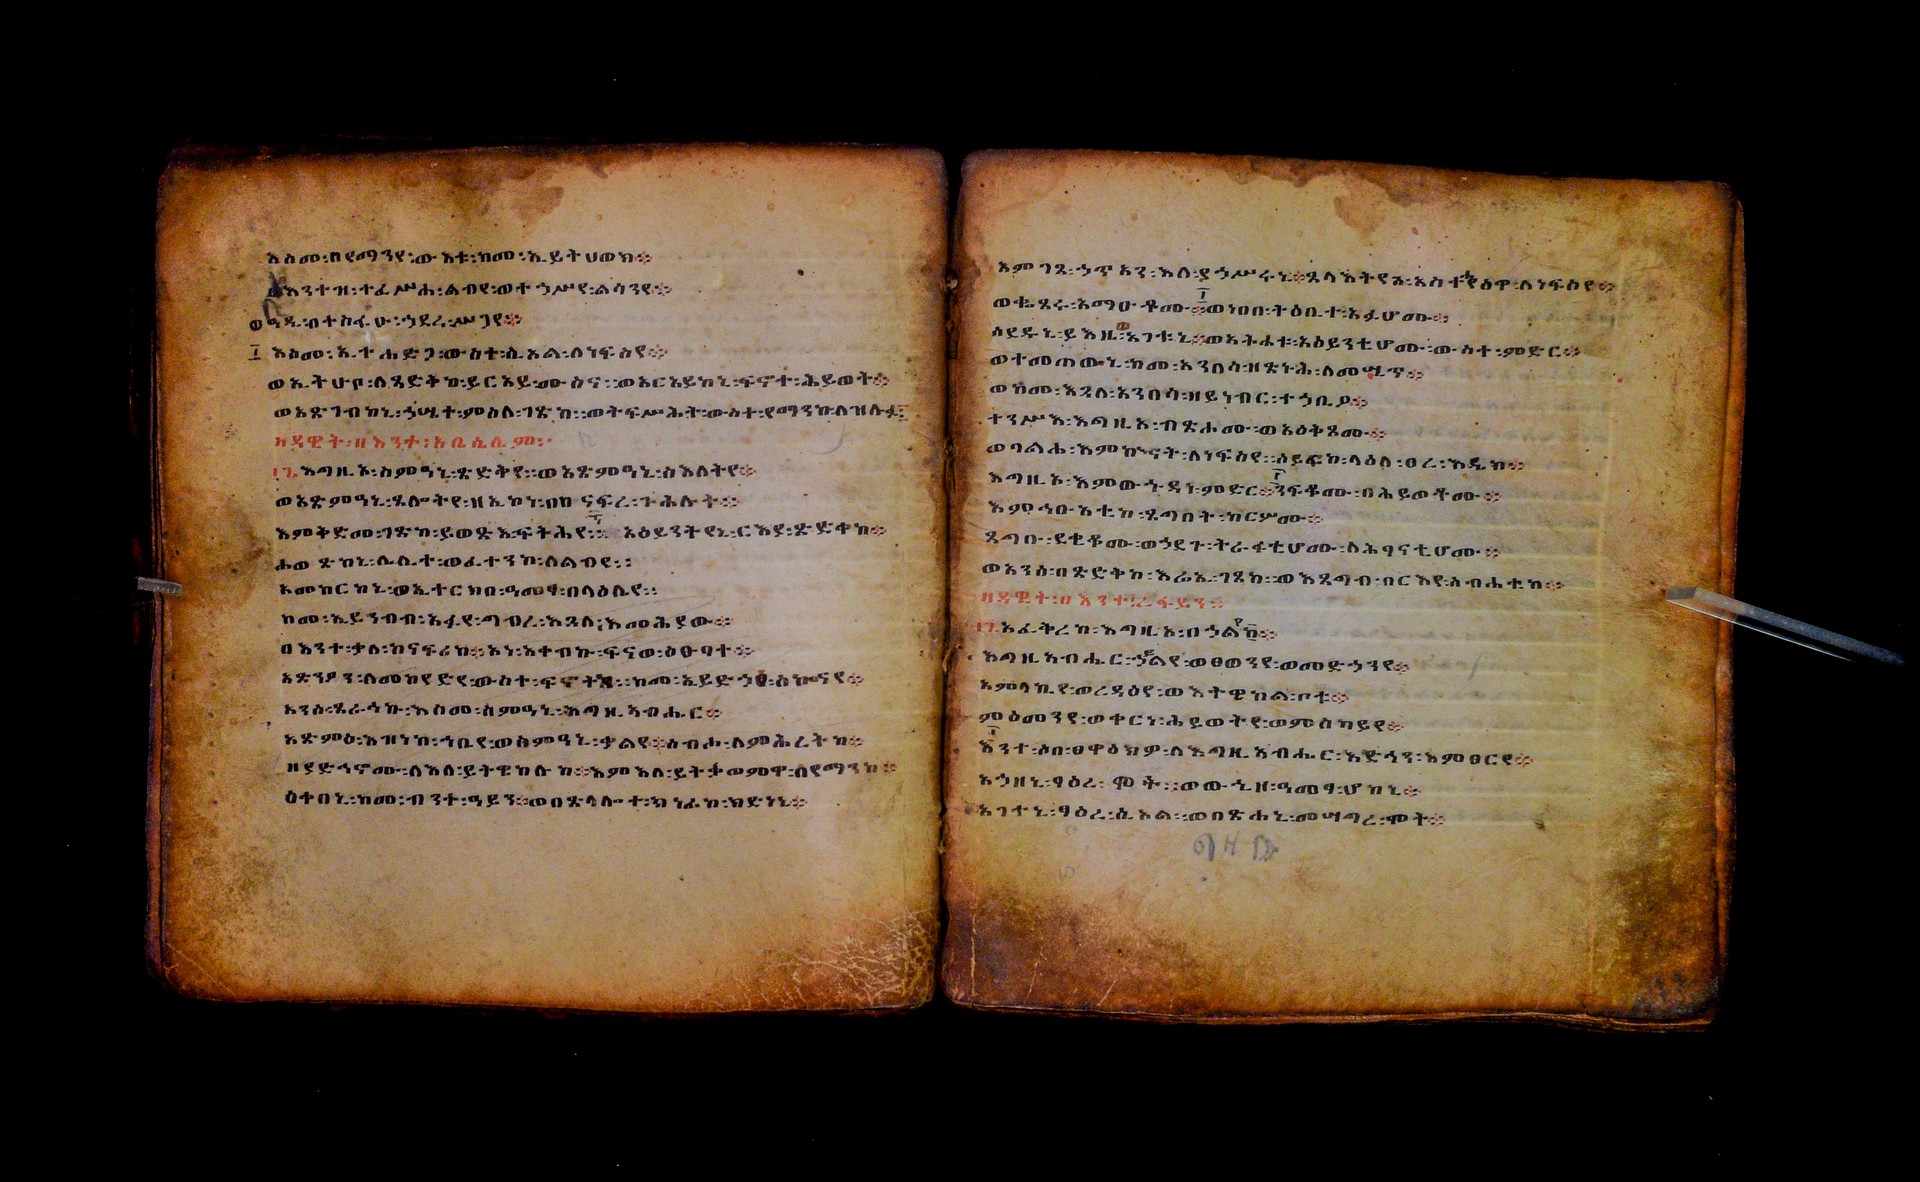 እስመ፡በየማንየ፡ውእቱ፡ከመ፡ኢይትሀወክ፨
በእንተዝ፡ተፈሥሐ፡ልብየ፡ወተኀሥየ፡ልሳንየ፨
ወዓዲ፡በተስፋሁ፡ኀደረ፡ሥጋየ፨
እስመ፡ኢተሐድጋ፡ውስተ፡ሲኦል፡ለነፍስየ፨
ወኢትሁቦ፡ለጻድቅከ፡ይርአይ፡ሙስና፡፡ወአርአይከኒ፡ፍኖተ፡ሕይወት፨
ወአጽገብከኒ፡ኀሤተ፡ምስለ፡ገጽከ፡፡ወትፍሥሕት፡ውስተ፡የማንከ፡ለዝሉፉ፡
ዘዳዊት፡በእንተ፡አቤሴሎም፡
፲፮እግዚኦ፡ስምዓኒ፡ጽድቅየ፡፡ወአጽምዓኒ፡ስእለትየ፨
ወአጽምዓኒ፡ጸሎትየ፡ዘኢኮነ፡በከናፍረ፡ጉሕሉት፨
እምቅድመ፡ገጽከ፡ይወጽእ፡ፍትሕየ፡፡አዕይንትየኒ፡ርእያ፡ጽድቀከ፨
ሐወጽከኒ፡ሌሊተ፡ወፈተንኮ፡ለልብየ፡፡
አመከርከኒ፡ወኢተርክበ፡ዓመፃ፡በላዕሌየ፡፡
ከመ፡ኢይንብብ፡አፉየ፡ግብረ፡እጓለ፡እመሕያው፨
በእንተ፡ቃለ፡ከናፍሪከ፨አነ፡አቀብኩ፡ፍናወ፡ዕፁባተ፨
አጽንዖን፡ለመከየድየ፡ውስተ፡ፍኖትከ፡፡ከመ፡ኢይድኀፅ፡ሰኰናየ፨
አንሰ፡ጸራኅኩ፡እስመ፡ሰምዓኒ፡እግዚአብሔር፨
አጽምዕ፡እዝነከ፡ኀቤየ፡ወስምዓኒ፡ቃልየ፨ሰብሖ፡ለምሕረትከ፨
ዘያድኅኖሙ፡ለእለ፡ይትዌከሉከ፨እምእለ፡ይትቃወምዋ፡ለየማንከ፨
ዕቀበኒ፡ከመ፡ብንተ፡ዓይን፡፡ወበጽላሎተ፡ክነፊከ፡ክድነኒ፨
እምገጸ፡ኃጥአን፡እለ፡ያኀሥሩኒ፨ጸላእትየሰ፡አስተየዕዋ፡ለነፍስየ፨
ወቈጸሩ፡አማዑቶሙ፨ወነበበ፡ትዕቢተ፡አፉሆሙ፨
ሰደዱኒ፡ይእዜ፡ወዐገቱኒ፨ወአትሐቱ፡አዕይንቲሆሙ፡ውስተ፡ምድር፨
ወተመጠውኒ፡ከመ፡አንበሳ፡ዘጽኑሕ፡ለመሢጥ፨
ወከመ፡እጓለ፡አንበሳ፡ዘይነብር፡ተኀቢዖ፨
ተንሥእ፡እግዚኦ፡ብጽሖሙ፡ወአዕቅጾሙ፨
ወባልሐ፡እምኵናት፡ለነፍስየ፡፡ሰይፍከ፡ላዕለ፡ፀረ፡እዴከ፨
እግዚኦ፡እምውኁዳነ፡ምድር፨ንፍቆሙ፡በሕይወቶሙ፨
እምኀቡአቲከ፡ጸግበት፡ከርሦሙ፨
ጸግቡ፡ደቂቆሙ፡ወኀደጉ፡ትራፋቲሆሙ፡ለሕፃናቲሆሙ፨
ወአንሰ፡በጽድቅከ፡እሬኢ፡ገጸከ፡፡ወእጸግብ፡በርእየ፡ስብሐቲከ፨
ዘዳዊት፡በእንተ፡ራፋይን፡
፲፯አፈቅረከ፡እግዚኦ፡በኃይልየ፨
እግዚአብሔር፡ኃይልየ፡ወፀወንየ፡ወመድኀንየ፨
አምላኪየ፡ወረዳዕየ፡ወእትዌከል፡ቦቱ፨
ምዕመንየ፡ወቀርነ፡ሕይወትየ፡ወምስካይየ፨
እንተ፡ዕበ፡ፀዋዕክዎ፡ለእግዚአብሔር፡እድኅን፡እምፀርየ፨
አኃዘኒ፡ፃዕረ፡ሞት፡፡ወውኂዘ፡ዓመፃ፡ሆከኒ፨
አገተኒ፡ፃዕረ፡ሲኦል፡፡ወበጽሐኒ፡መሣግረ፡ሞት፨